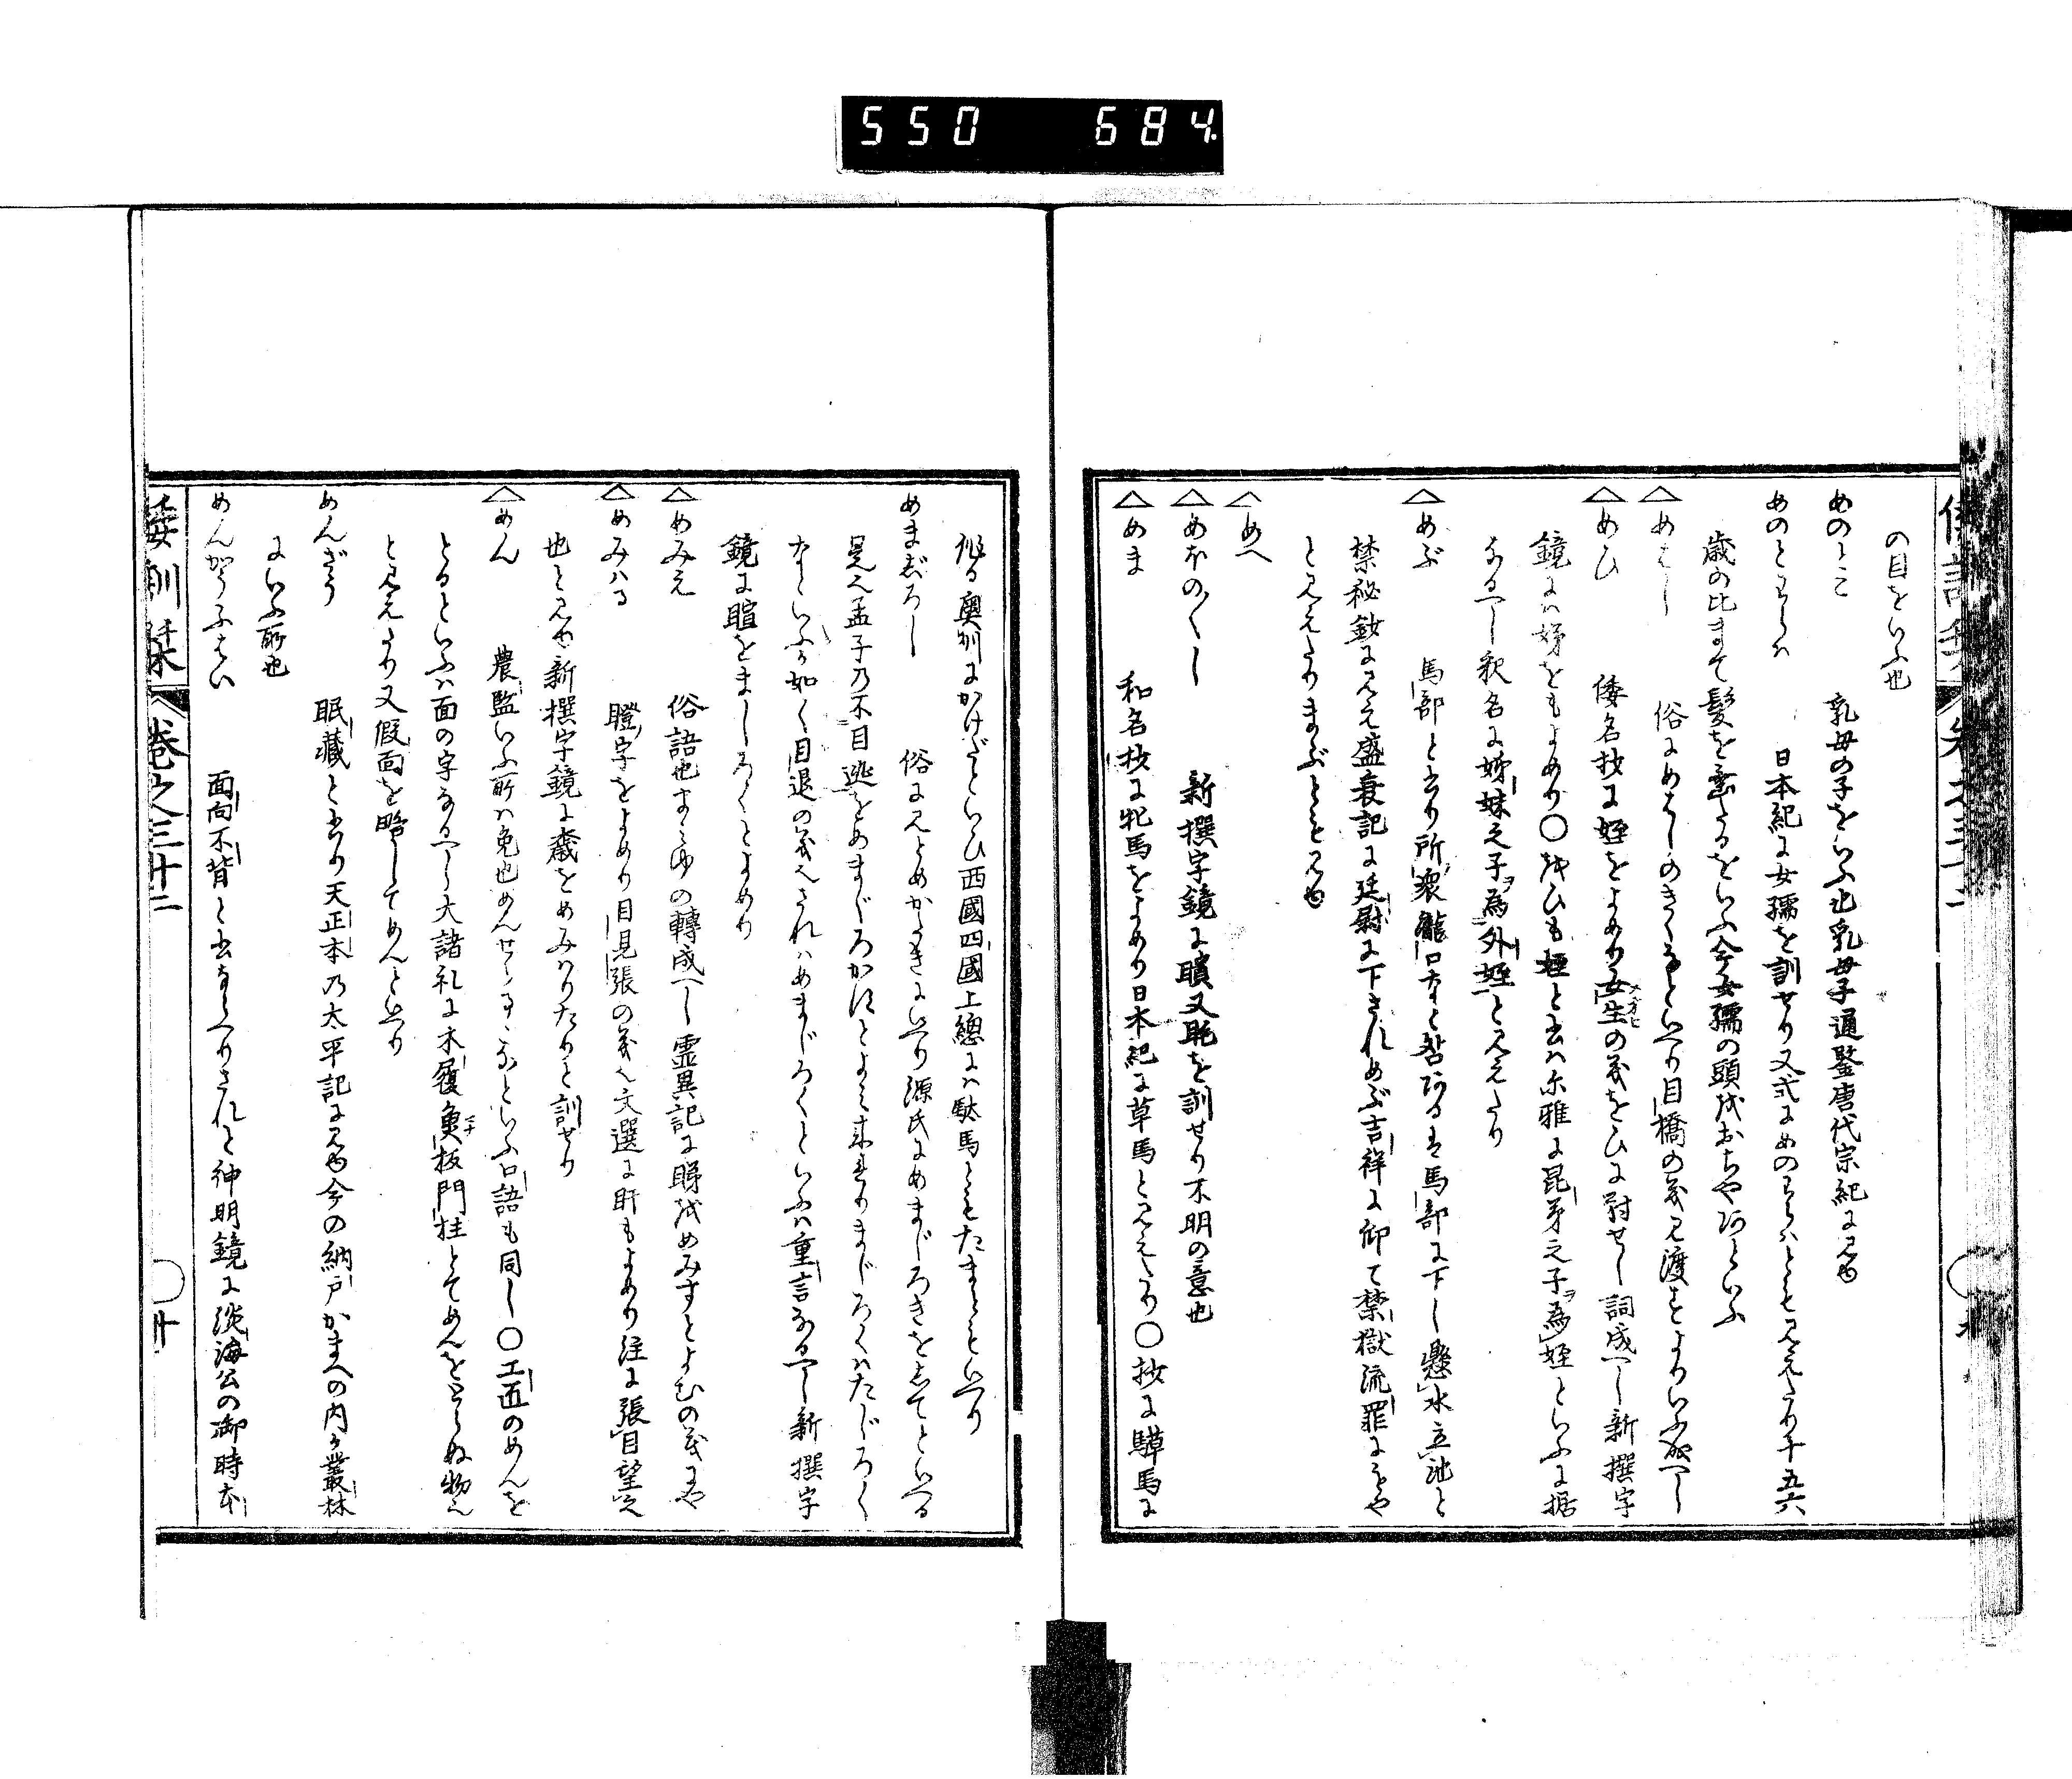 550 684
の目をいふ也
めのとこ 乳母の子をいふ也乳母子通鑒唐代宗紀に見ゆ
めのとわらハ 日本紀に女孺を訓せり又式にめのわらハとも見えたり十五六
歳の比まて髪を垂たるをいふ今女孺の頭をおちやばといふ
△めはし 俗にめはしのきくなといへり目橋の義見渡すよりいふ成へし
△めひ 倭名抄に姪をよめり女生の義をひに対せし詞成へし新撰字
鏡にハ娣をもよめり○をひも姪と書ハ尓雅に昆弟之子為姪といふに据
なるへし釈名に姊妹之子為外姪と見えたり
△めぶ 馬部と書り所衆瀧口なと
禁秘鈔に見え盛衰記に廷尉に下されめぶ吉祥に仰て禁獄流罪にをや
と見えたりまぶとも見ゆ
△めへ
△めほのくし 新撰字鏡に又眊を訓せり不明の意也
△めま 和名抄に牝馬をよめり日本紀に草馬と見えたり○抄に騲馬に
倭訓栞 巻之三十二
奥州にかけだといひ西國四國上總にハ駄馬ともたまともいへり
めまぜろし 俗に見とめかたきにいへり源氏にめまじろきをしてといへる
是也孟子乃不目逃をめまじろかすとよみ来れりまじろくハたじろく
なといふか如く目退の義也されハめまじろくといふハ重言なるへし新撰字
鏡に暄をましろくとよめり
△めみえ 俗語也まみゆの轉成へし霊異記に睇をめみすとよむの義にや
△めみハる 瞪字をよめり目見張の義也文選に盱もよめり注に張目望也
也と見ゆ新撰字鏡に睿をめみハりたりと訓せり
△めん 農監いふ所ハ免也めんせらるゝなといふ口語も同し○工匠のめんを
とるといふハ面の字なるへし大諸礼に木履魚板門柱とてめんをとらぬ物也
と見えたり又假面を略してめんといへり
めんざう 眠藏と書り天正本乃太平記に見ゆ今の納戸かまへの内か叢林
にいふ所也
めんかうふはい 面向不背と書ならへりされと神明鏡に淡海公の御時本
倭訓栞 巻之三十二 ○廿